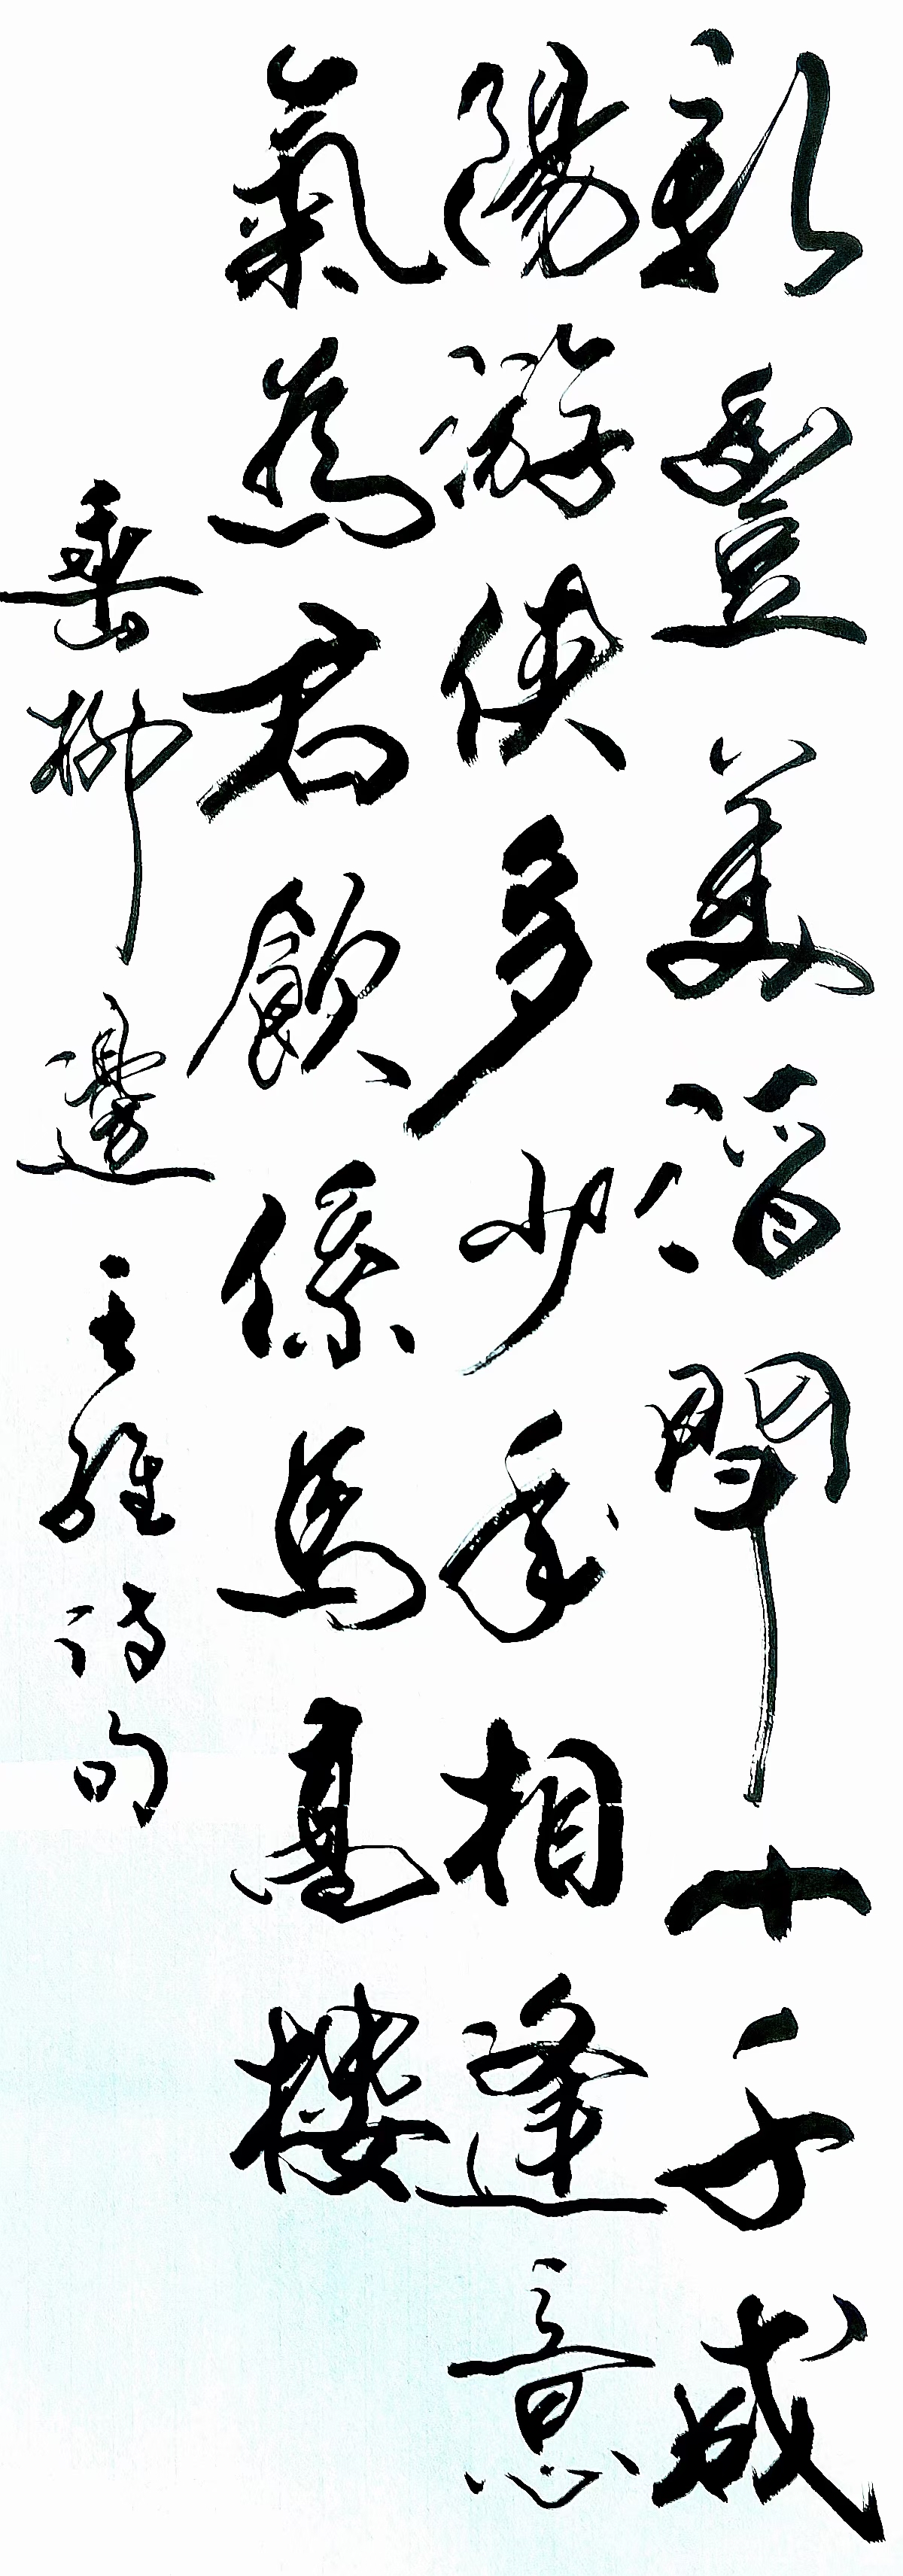 新豐美酒鬥十千咸
陽游俠多少年相逢意
氣為君飲係馬高樓
垂柳邊 王維詩句